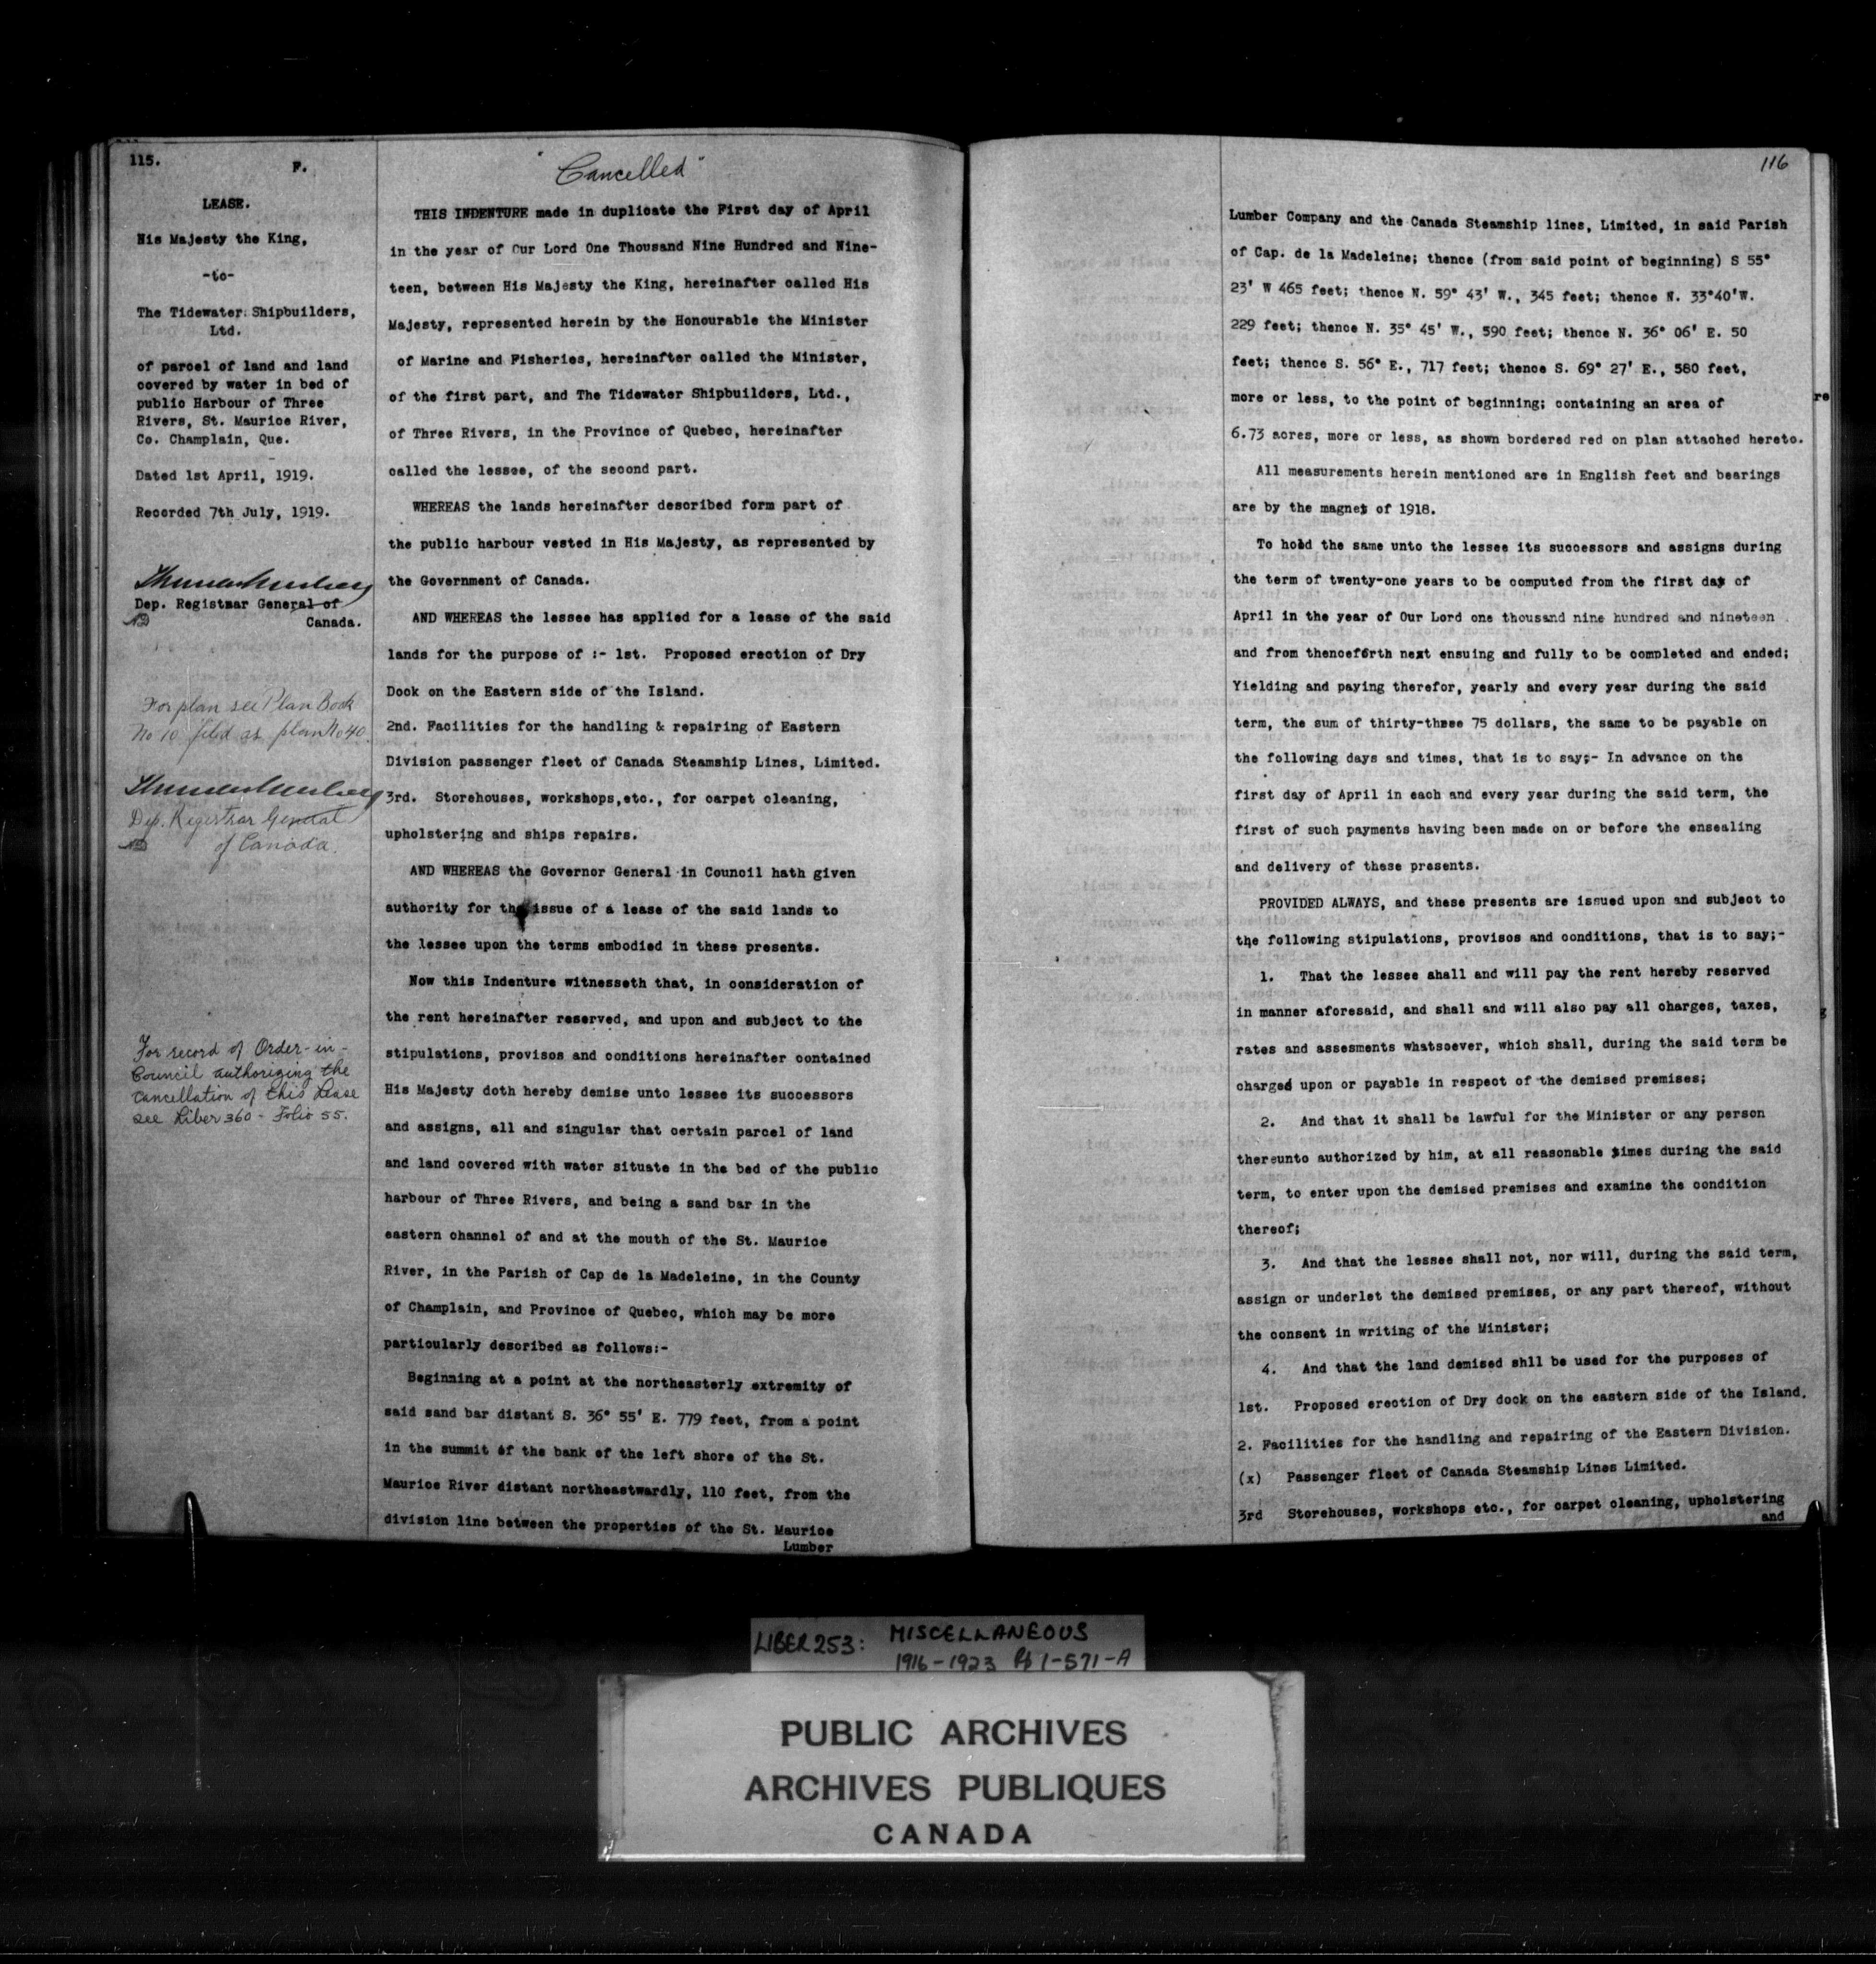 115.
F.
LEASE.
His Majesty the King,
-to-
The Tidewater Shipbuilders,
Ltd.
of parcel of land and land
covered by water in bed of
public Harbour of Three
Rivers, St. Maurice River,
Co. Champlain, Que.
Dated 1st April, 1919.
Recorded 7th July, 1919.
Dep. Registrar General of
Canada.
For plan see Plan Book
No 10 filed as plan No 40.
Dep. Registrar General
of Canada.
For record of Order-in-
Council authorizing the
cancellation of this Lease
see Liber 360 - Folio 55.
"Cancelled"
THIS INDENTURE made in duplicate the First day of April
in the year of Our Lord One Thousand Nine Hundred and Nine-
teen, between His Majesty the King, hereinafter called His
Majesty, represented herein by the Honourable the Minister
of Marine and Fisheries, hereinafter called the Minister,
of the first part, and The Tidewater Shipbuilders, Ltd.,
of Three Rivers, in the Province of Quebec, hereinafter
called the lessee, of the second part.
WHEREAS the lands hereinafter described form part of
the public harbour vested in His Majesty, as represented by
the Government of Canada.
AND WHEREAS the lessee has applied for a lease of the said
lands for the purpose of :- 1st. Proposed erection of Dry
Dock on the Eastern side of the Island.
2nd. Facilities for the handling & repairing of Eastern
Division passenger fleet of Canada Steamship Lines, Limited.
3rd. Storehouses, workshops,etc., for carpet cleaning,
upholstering and ships repairs.
AND WHEREAS the Governor General in Council hath given
authority for the issue of a lease of the said lands to
the lessee upon the terms embodied in these presents.
Now this Indenture witnesseth that, in consideration of
the rent hereinafter reserved, and upon and subject to the
stipulations, provisos and conditions hereinafter contained
His Majesty doth hereby demise unto lessee its successors
and assigns, all and singular that certain parcel of land
and land covered with water situate in the bed of the public
harbour of Three Rivers, and being a sand bar in the
eastern channel of and at the mouth of the St. Maurice
River, in the Parish of Cap de la Madeleine, in the County
of Champlain, and Province of Quebec, which may be more
particularly described as follows:-
Beginning at a point at the northeasterly extremity of
said sand bar distant S. 36° 55' E. 779 feet, from a point
in the summit of the bank of the left shore of the St.
Maurice River distant northeastwardly, 110 feet, from the
division line between the properties of the St. Maurice
Lumber
116
Lumber Company and the Canada Steamship lines, Limited, in said Parish
of Cap. de la Madeleine; thence (from said point of beginning) S 55°
23' W 465 feet; thence N. 59° 43' W., 345 feet; thence N. 33°40'W.
229 feet; thence N. 35° 45' W., 590 feet; thence N. 36° 06' E. 50
feet; thence S. 56° E., 717 feet; thence S. 69° 27' E., 580 feet,
more or less, to the point of beginning; containing an area of
6.73 acres, more or less, as shown bordered red on plan attached hereto.
All measurements herein mentioned are in English feet and bearings
are by the magnet of 1918.
To hold the same unto the lessee its successors and assigns during
the term of twenty-one years to be computed from the first day of
April in the year of Our Lord one thousand nine hundred and nineteen
and from thenceforth next ensuing and fully to be completed and ended;
Yielding and paying therefor, yearly and every year during the said
term, the sum of thirty-three 75 dollars, the same to be payable on
the following days and times, that is to say;- In advance on the
first day of April in each and every year during the said term, the
first of such payments having been made on or before the ensealing
and delivery of these presents.
PROVIDED ALWAYS, and these presents are issued upon and subject to
the following stipulations, provisos and conditions, that is to say;-
1. That the lessee ahall and will pay the rent hereby reserved
in manner aforesaid, and shall and will also pay all charges, taxes,
rates and assesments whatsoever, which shall, during the said term be
charged upon or payable in respect of the demised premises;
2. And that it shall be lawful for the Minister or any person
thereunto authorized by him, at all reasonable times during the said
term, to enter upon the demised premises and examine the condition
thereof;
3. And that the lessee shall not, nor will, during the said term,
assign or underlet the demised premises, or any part thereof, without
the consent in writing of the Minister;
4. And that the land demised shll be used for the purposes of
1st. Proposed erection of Dry dock on the eastern side of the Island.
2. Facilities for the handling and repairing of the Eastern Division.
(x) Passenger fleet of Canada Steamship Lines Limited.
3rd Storehouses, workshops etc., for carpet cleaning, upholstering
and
LIBER 253: MISCELLANEOUS
1916-1923 Pp 1-571-A
PUBLIC ARCHIVES
ARCHIVES PUBLIQUES
CANADA